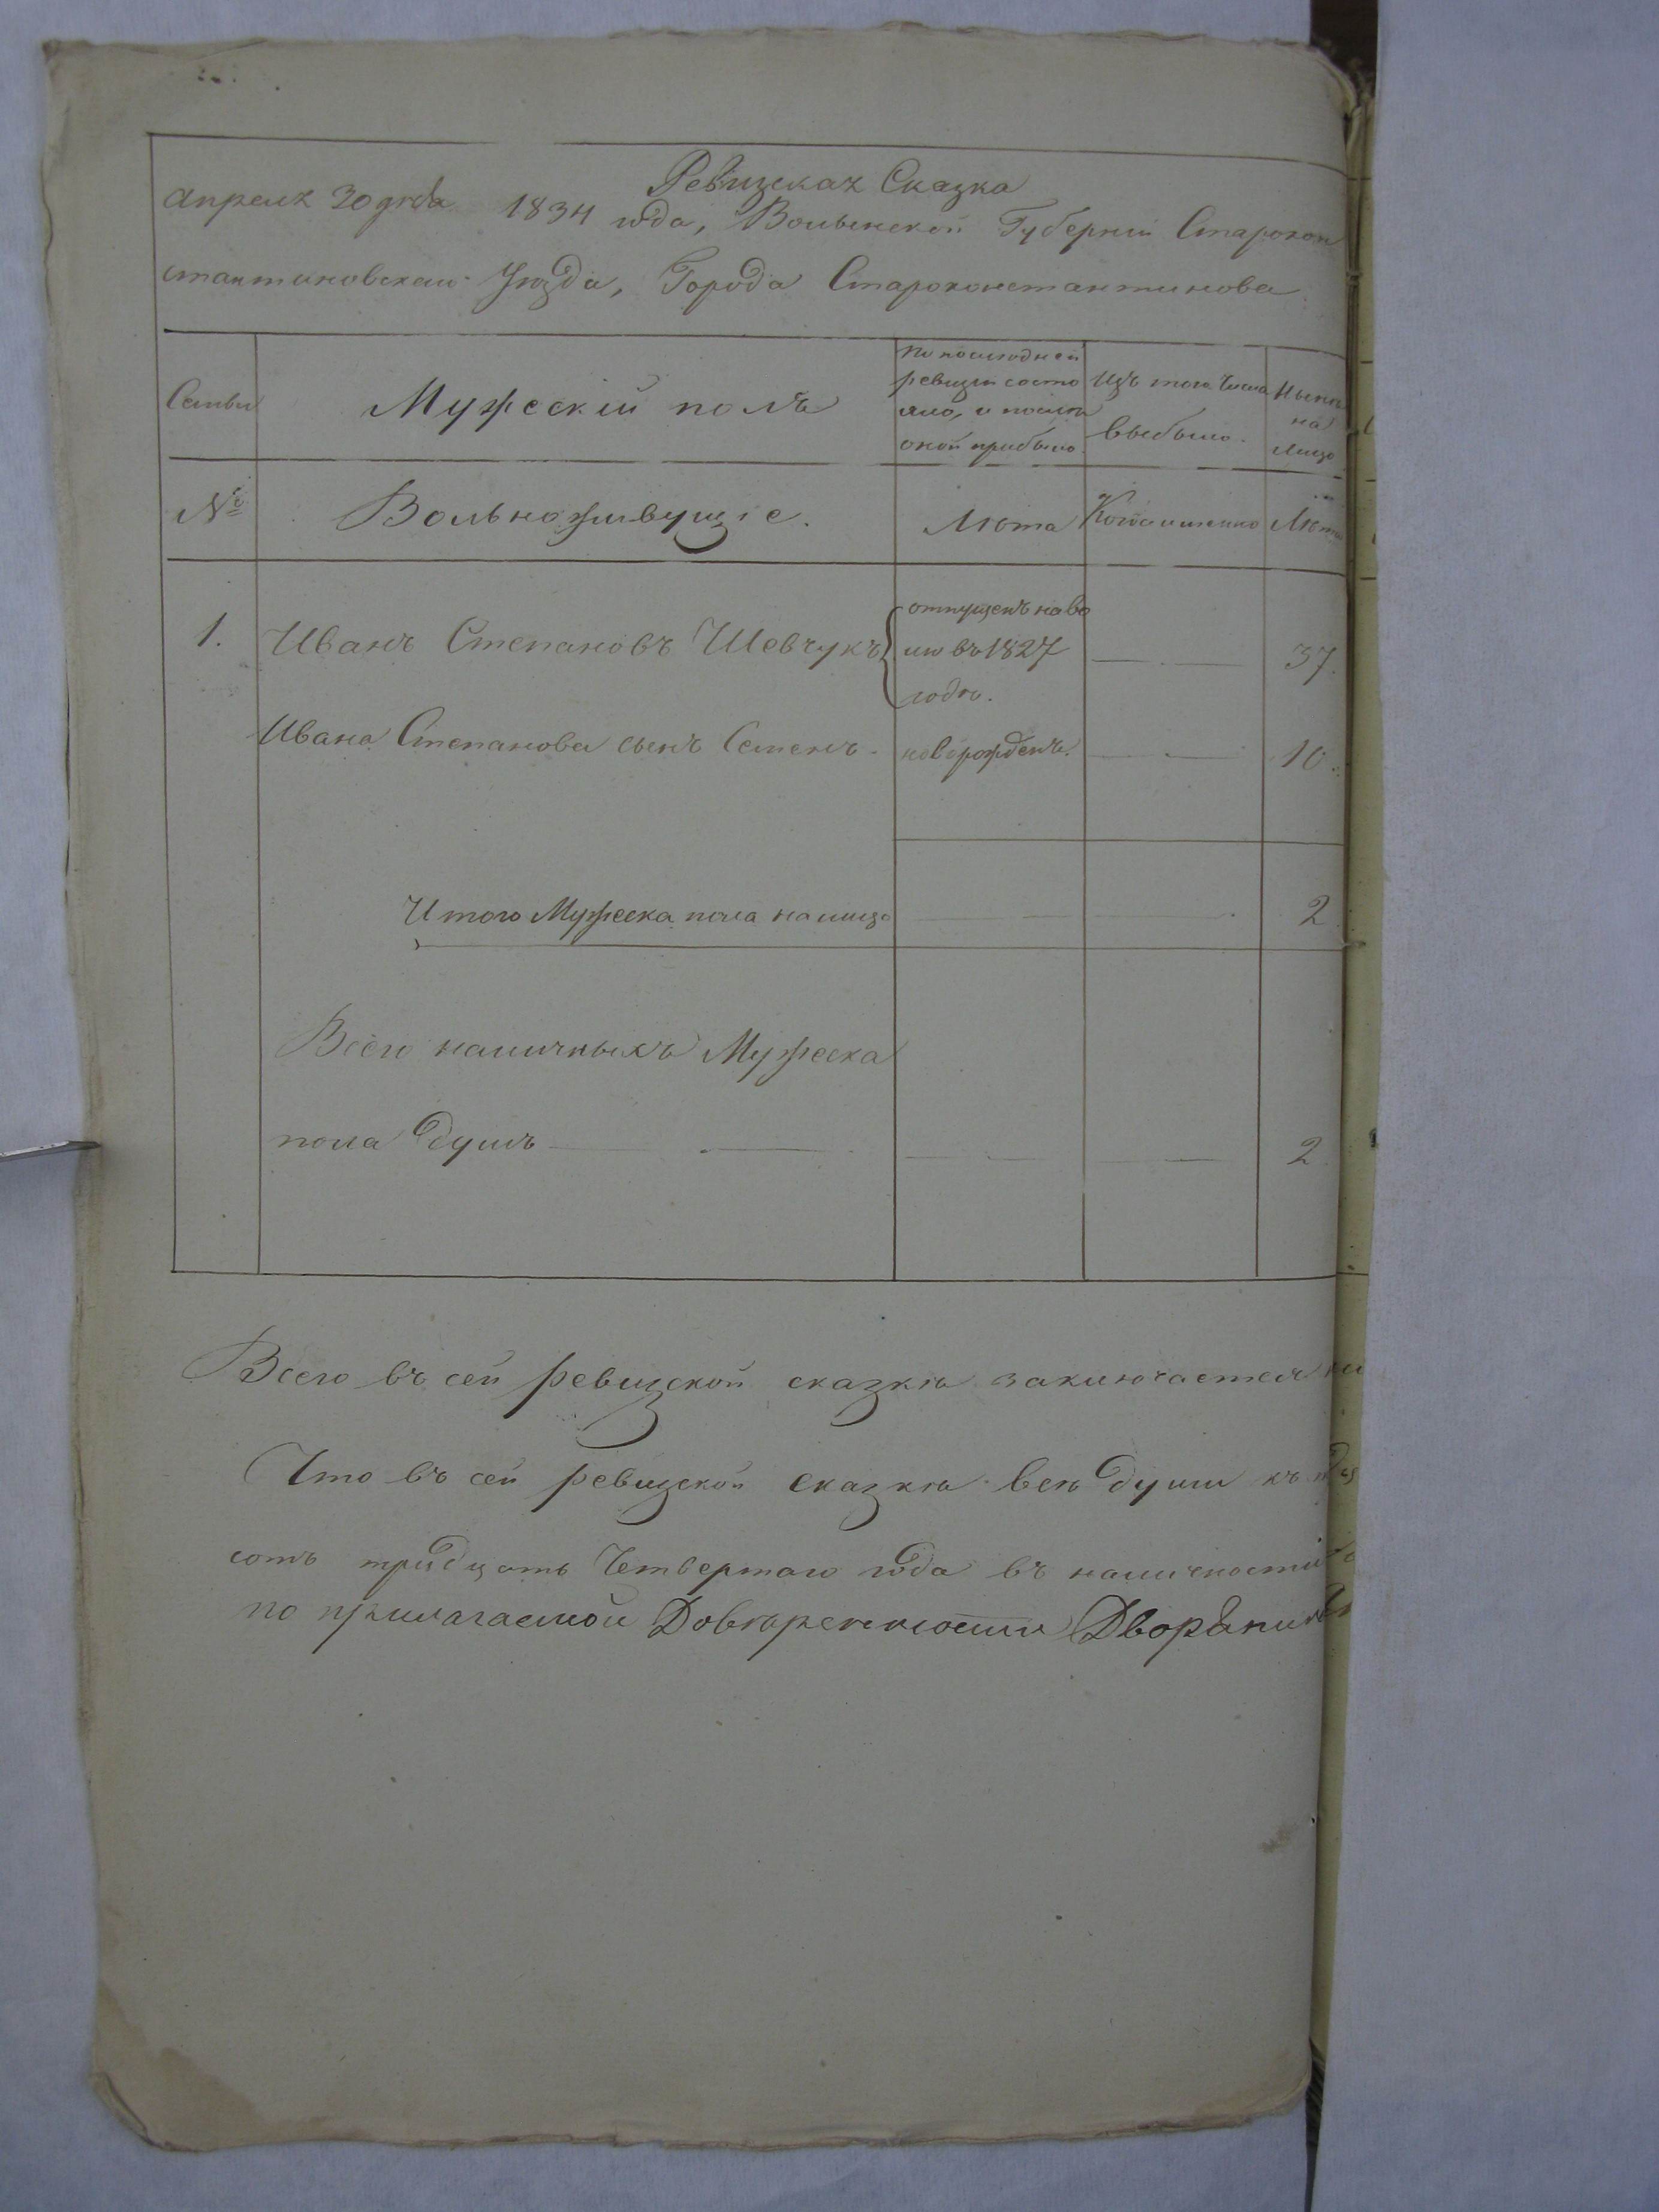 Ревизская Сказка
Апреля 30 дня 1834 года, Волынской Губернии Старокон
стантиновскаго Уѣзда, Города Староконстантинова
Семьи
Мужескій полъ
По последней
ревизіи состо
яло, и после
оной прибыло.
Изъ того числа
выбыло.
Нынѣ
на
лицо
№
Вольноживущіе.
Лѣта
Когда именно
Лѣта
1.
Иванъ Степановъ Шевчукъ
отпущенъ наво
лю въ 1827
годѣ.
37.
Ивана Степанова сынъ Семенъ
новорожденъ.
10.
Итого Мужеска пола налицо
2
Всего наличныхъ Мужеска
пола душъ
2
Всего въ сей ревизской сказкѣ заключается
Что въ сей ревизской сказкѣ всѣ души къ
сотъ тридцать Четвертаго года въ наличности
по прилагаемой Довѣренности Дворянинъ